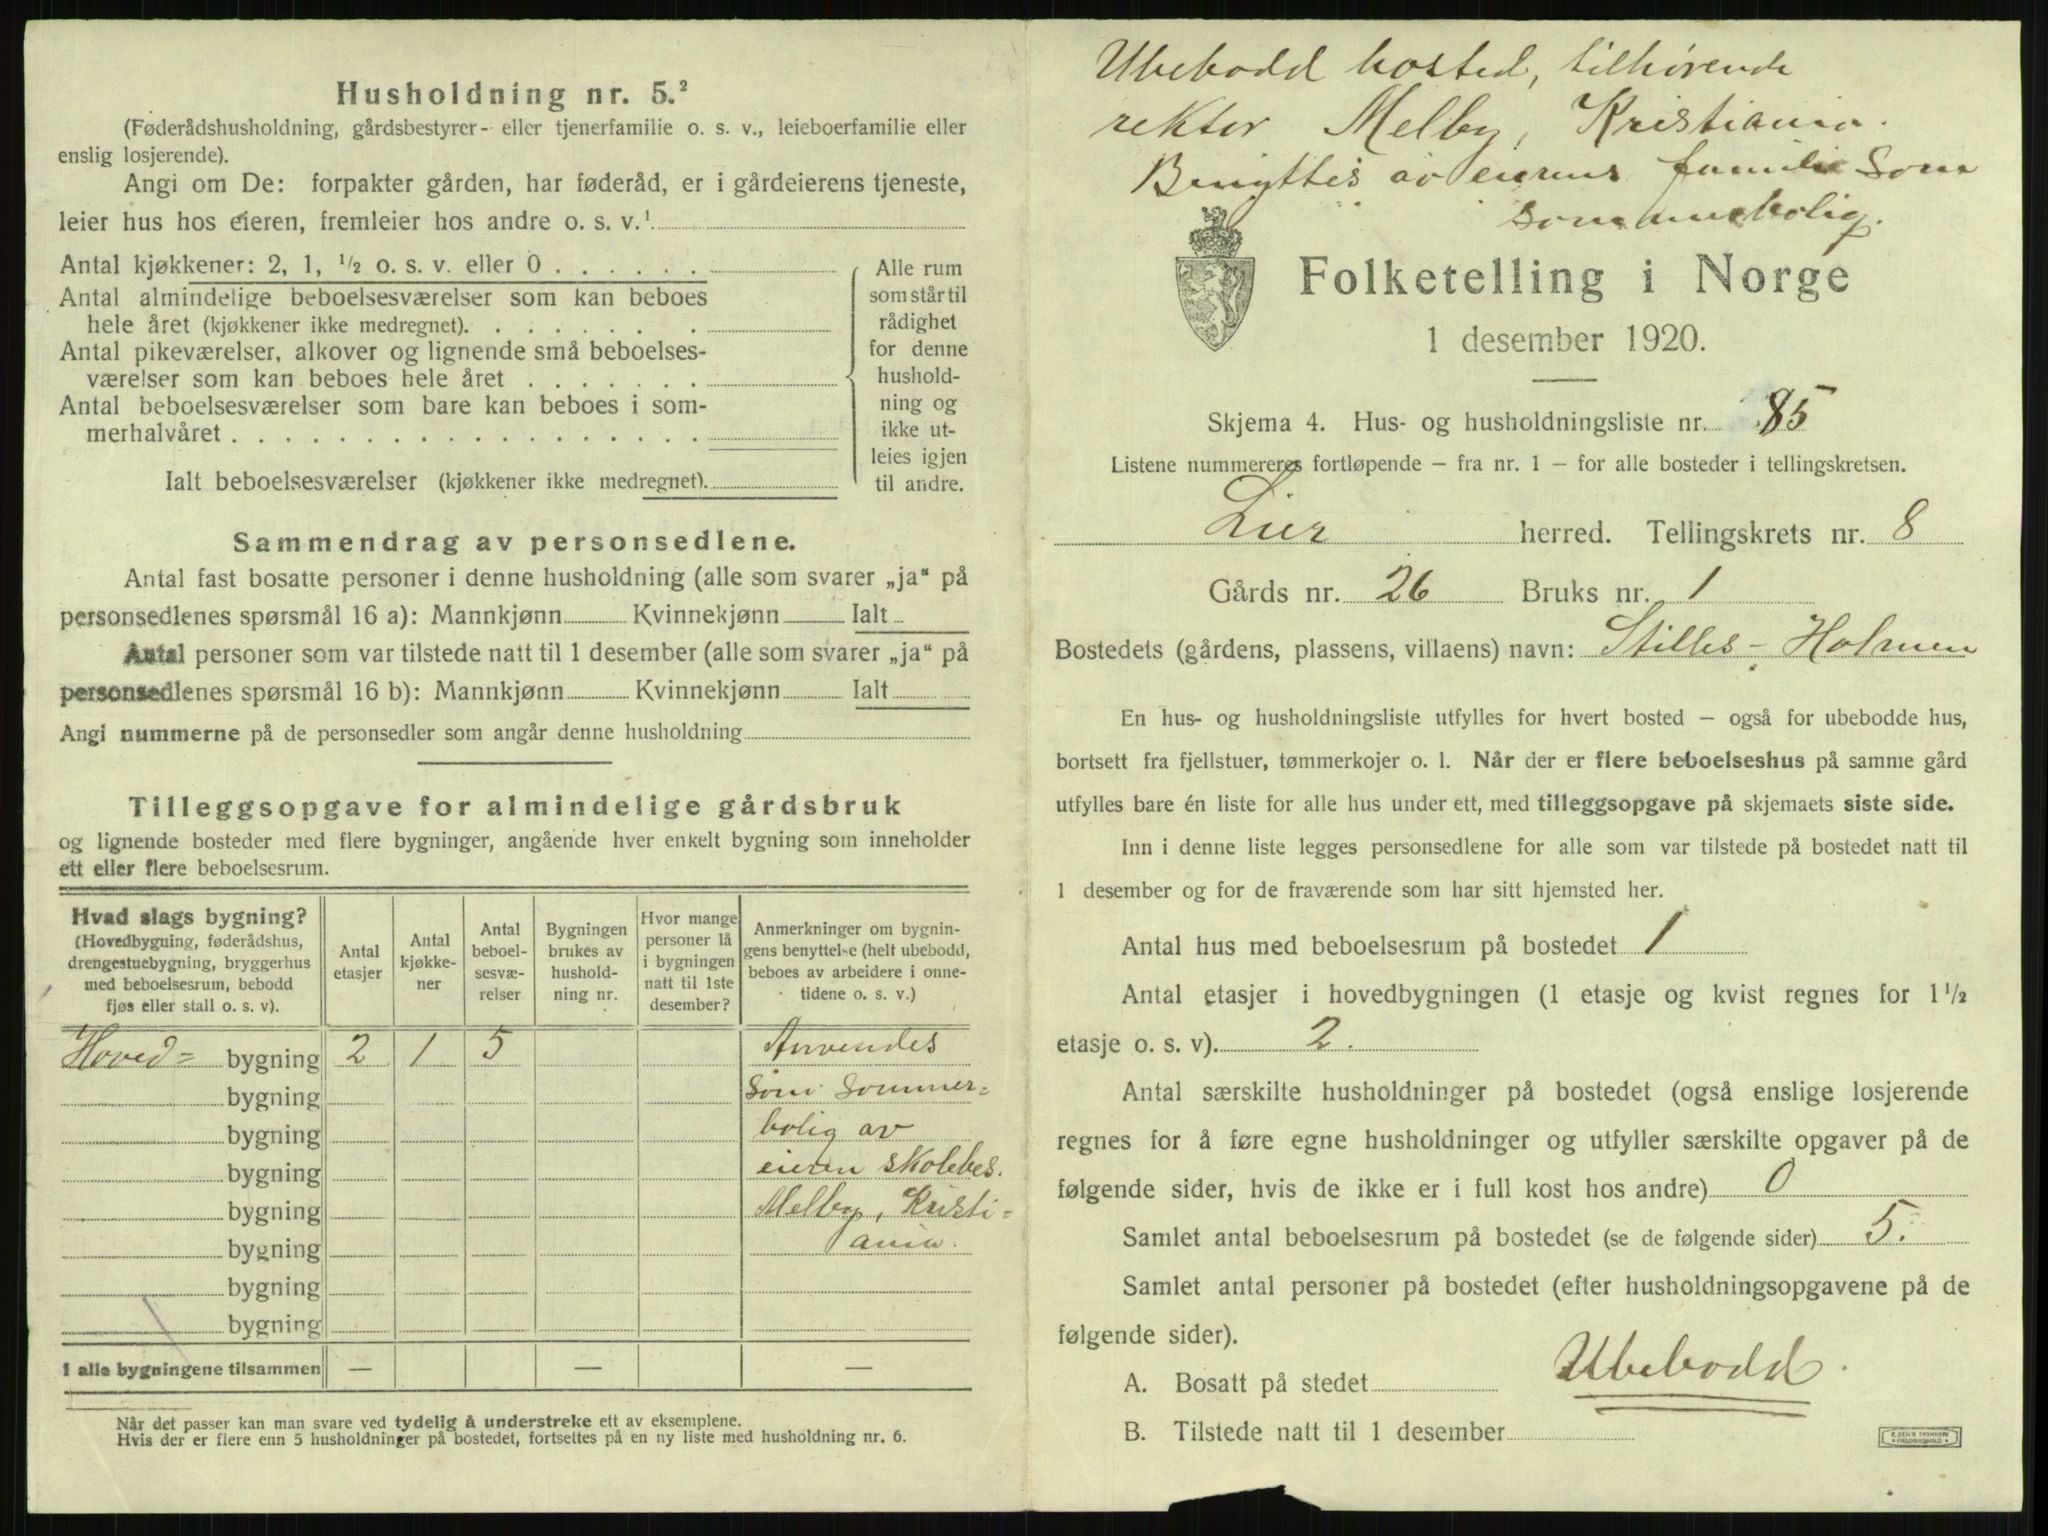 Husholdning nr. 5.²
(Føderådshusholdning, gårdsbestyrer- eller tjenerfamilie o. s. v., leieboerfamilie eller
enslig losjerende).
Angi om De: forpakter gården, har føderåd, er i gårdeierens tjeneste,
leier hus hos eieren, fremleier hos andre o. s. v.¹
Antal kjøkkener: 2, 1, ½ o. s. v. eller 0 . . . . . .
Antal almindelige beboelsesværelser som kan beboes
hele året (kjøkkener ikke medregnet). . . . . . . .
Antal pikeværelser, alkover og lignende små beboelses-
værelser som kan beboes hele året . . . . . . .
Antal beboelsesværelser som bare kan beboes i som-
merhalvåret . . . . . . . . . . . . . . . . . .
Ialt beboelsesværelser (kjøkkener ikke medregnet).
Alle rum
som står til
rådighet
for denne
hushold-
ning og
ikke ut-
leies igjen
til andre.
Sammendrag av personsedlene.
Antal fast bosatte personer i denne husholdning (alle som svarer „ja“ på
personsedlenes spørsmål 16 a): Mannkjønn Kvinnekjønn Ialt
Antal personer som var tilstede natt til 1 desember (alle som svarer „ja“ på
personsedlenes spørsmål 16 b): Mannkjønn Kvinnekjønn Ialt
Angi nummerne på de personsedler som angår denne husholdning
Tilleggsopgave for almindelige gårdsbruk
og lignende bosteder med flere bygninger, angående hver enkelt bygning som inneholder
ett eller flere beboelsesrum.
Hvad slags bygning?
(Hovedbygning, føderådshus,
drengestuebygning, bryggerhus
med beboelsesrum, bebodd
fjøs eller stall o. s. v).
Antal
etasjer
Antal
kjøkke-
ner
Antal
beboel-
sesvæ-
relser
Bygningen
brukes av
hushold-
ning nr.
Hvor mange
personer lå
i bygningen
natt til 1ste
desember?
Anmerkninger om bygnin-
gens benyttelse (helt ubebodd,
beboes av arbeidere i onne-
tidene o. s. v.)
Hoved= bygning 2 1 5 Anvendes
bygning som sommer=
bygning bolig av
bygning eieren skolebes.
bygning Melby, Kristi=
bygning ania.
bygning
bygning
I alle bygningene tilsammen — — —
Når det passer kan man svare ved tydelig å understreke ett av eksemplene.
Hvis der er flere enn 5 husholdninger på bostedet, fortsettes på en ny liste med husholdning nr. 6.
Ubebodd bosted, tilhørende
rektor Melby, Kristiania.
Benyttes av eierens familie som
sommerbolig.
Folketelling i Norge
1 desember 1920.
Skjema 4. Hus- og husholdningsliste nr. 85
Listene nummereres fortløpende – fra nr. 1 – for alle bosteder i tellingskretsen.
Lier herred. Tellingskrets nr. 8
Gårds nr. 26 Bruks nr. 1
Bostedets (gårdens, plassens, villaens) navn: Stilles- Holmen
En hus- og husholdningsliste utfylles for hvert bosted – også for ubebodde hus,
bortsett fra fjellstuer, tømmerkojer o. l. Når der er flere beboelseshus på samme gård
utfylles bare én liste for alle hus under ett, med tilleggsopgave på skjemaets siste side.
Inn i denne liste legges personsedlene for alle som var tilstede på bostedet natt til
1 desember og for de fraværende som har sitt hjemsted her.
Antal hus med beboelsesrum på bostedet 1
Antal etasjer i hovedbygningen (1 etasje og kvist regnes for 1½
etasje o. s. v). 2.
Antal særskilte husholdninger på bostedet (også enslige losjerende
regnes for å føre egne husholdninger og utfyller særskilte opgaver på de
følgende sider, hvis de ikke er i full kost hos andre) 0
Samlet antal beboelsesrum på bostedet (se de følgende sider) 5.
Samlet antal personer på bostedet (efter husholdningsopgavene på de
følgende sider).
Ubebodd.
A. Bosatt på stedet
B. Tilstede natt til 1 desember